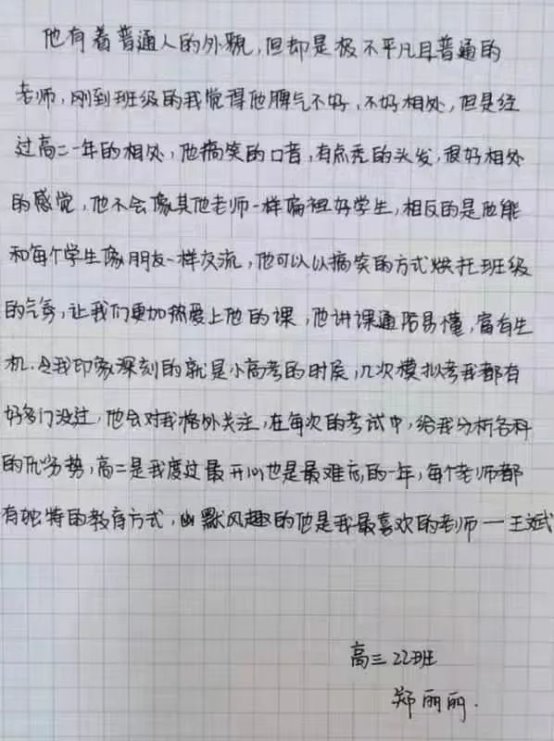 他有着普通人的外貌，但却是极不平凡且普通的
老师，刚到班级的我觉得他脾气不好，不好相处，但是经
过高二一年的相处，他搞笑的口音，有点秃的头发，很好相处
的感觉，他不会像其他老师一样偏袒好学生，相反的是他能
和每个学生像朋友一样交流，他可以以搞笑的方式烘托班级
的气氛，让我们更加热爱上他的课，他讲课通俗易懂，富有生
机。令我印象深刻的就是小高考的时候，几次模拟考我都有
好多门没过，他会对我格外关注，在每次的考试中，给我分析各科
的优劣势，高二是我度过最开心也是最难忘的一年，每个老师都
有独特的教育方式，幽默风趣的他是我最喜欢的老师——王斌
高三22班
郑丽丽.